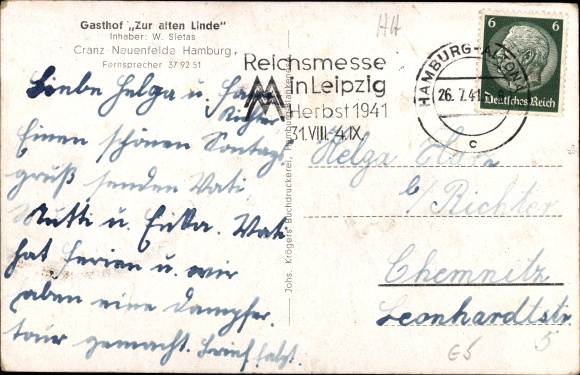 Gasthof „Zur alten Linde"
Inhaber: W. Sietas
Cranz-Neuenfelde Hamburg
Fernsprecher 37 92 51
Liebe Helga u.
Richter
Einen schönen Sontags
gruß senden Vati
Mutti u. Erika. Vati
hat Ferien u. wir
haben eine Dampfer
tour gemacht. Brief folgt.
Johs. Krögers Buchdruckerei, Hamburg-Blankenese
HH
Reichsmesse
in Leipzig
Herbst 1941
31.VIII.-4.IX.
HAMBURG-ALTONA
26.7.41
c
6 6
Deutsches Reich
Helga
b/Richter
Chemnitz
Leonhardtstr
5